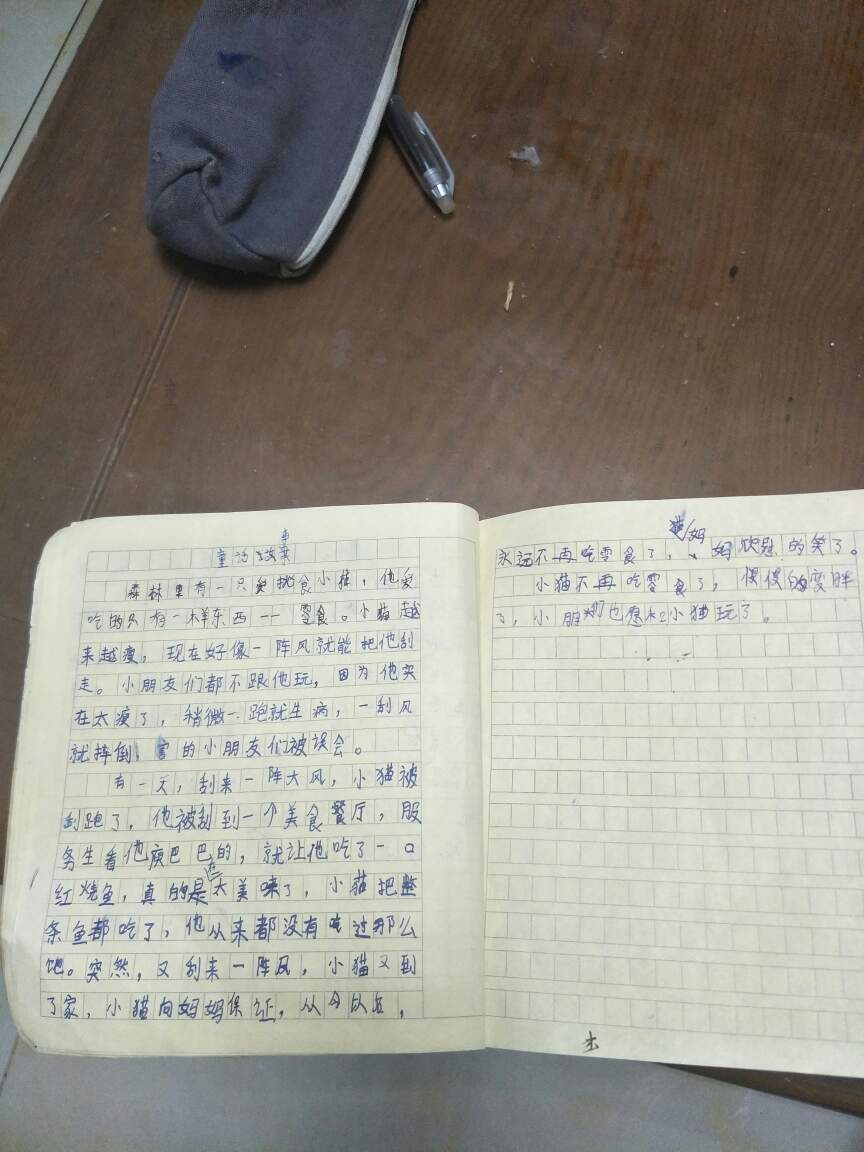 童话故事
森林里有一只爱挑食小猫，他爱
吃的只有一样东西——零食。小猫越
来越瘦，现在好像一阵风就能把他刮
走。小朋友们都不跟他玩，因为他实
在太瘦了，稍微一跑就生病，一刮风
就摔倒，害的小朋友们被误会。
有一天，刮来一阵大风，小猫被
刮跑了，他被刮到一个美食餐厅，服
务生看他瘐巴巴的，就让他吃了一口
红烧鱼，真的是太美味了，小猫把整
条鱼都吃了，他从来都没有吃过那么
饱。突然，又刮来一阵风，小猫又到
了家，小猫向妈妈保证，从今以后，
永远不再吃零食了，猫妈妈欣慰的笑了。
小猫不再吃零食了，慢慢的变胖
了，小朋友们也愿和小猫玩了。